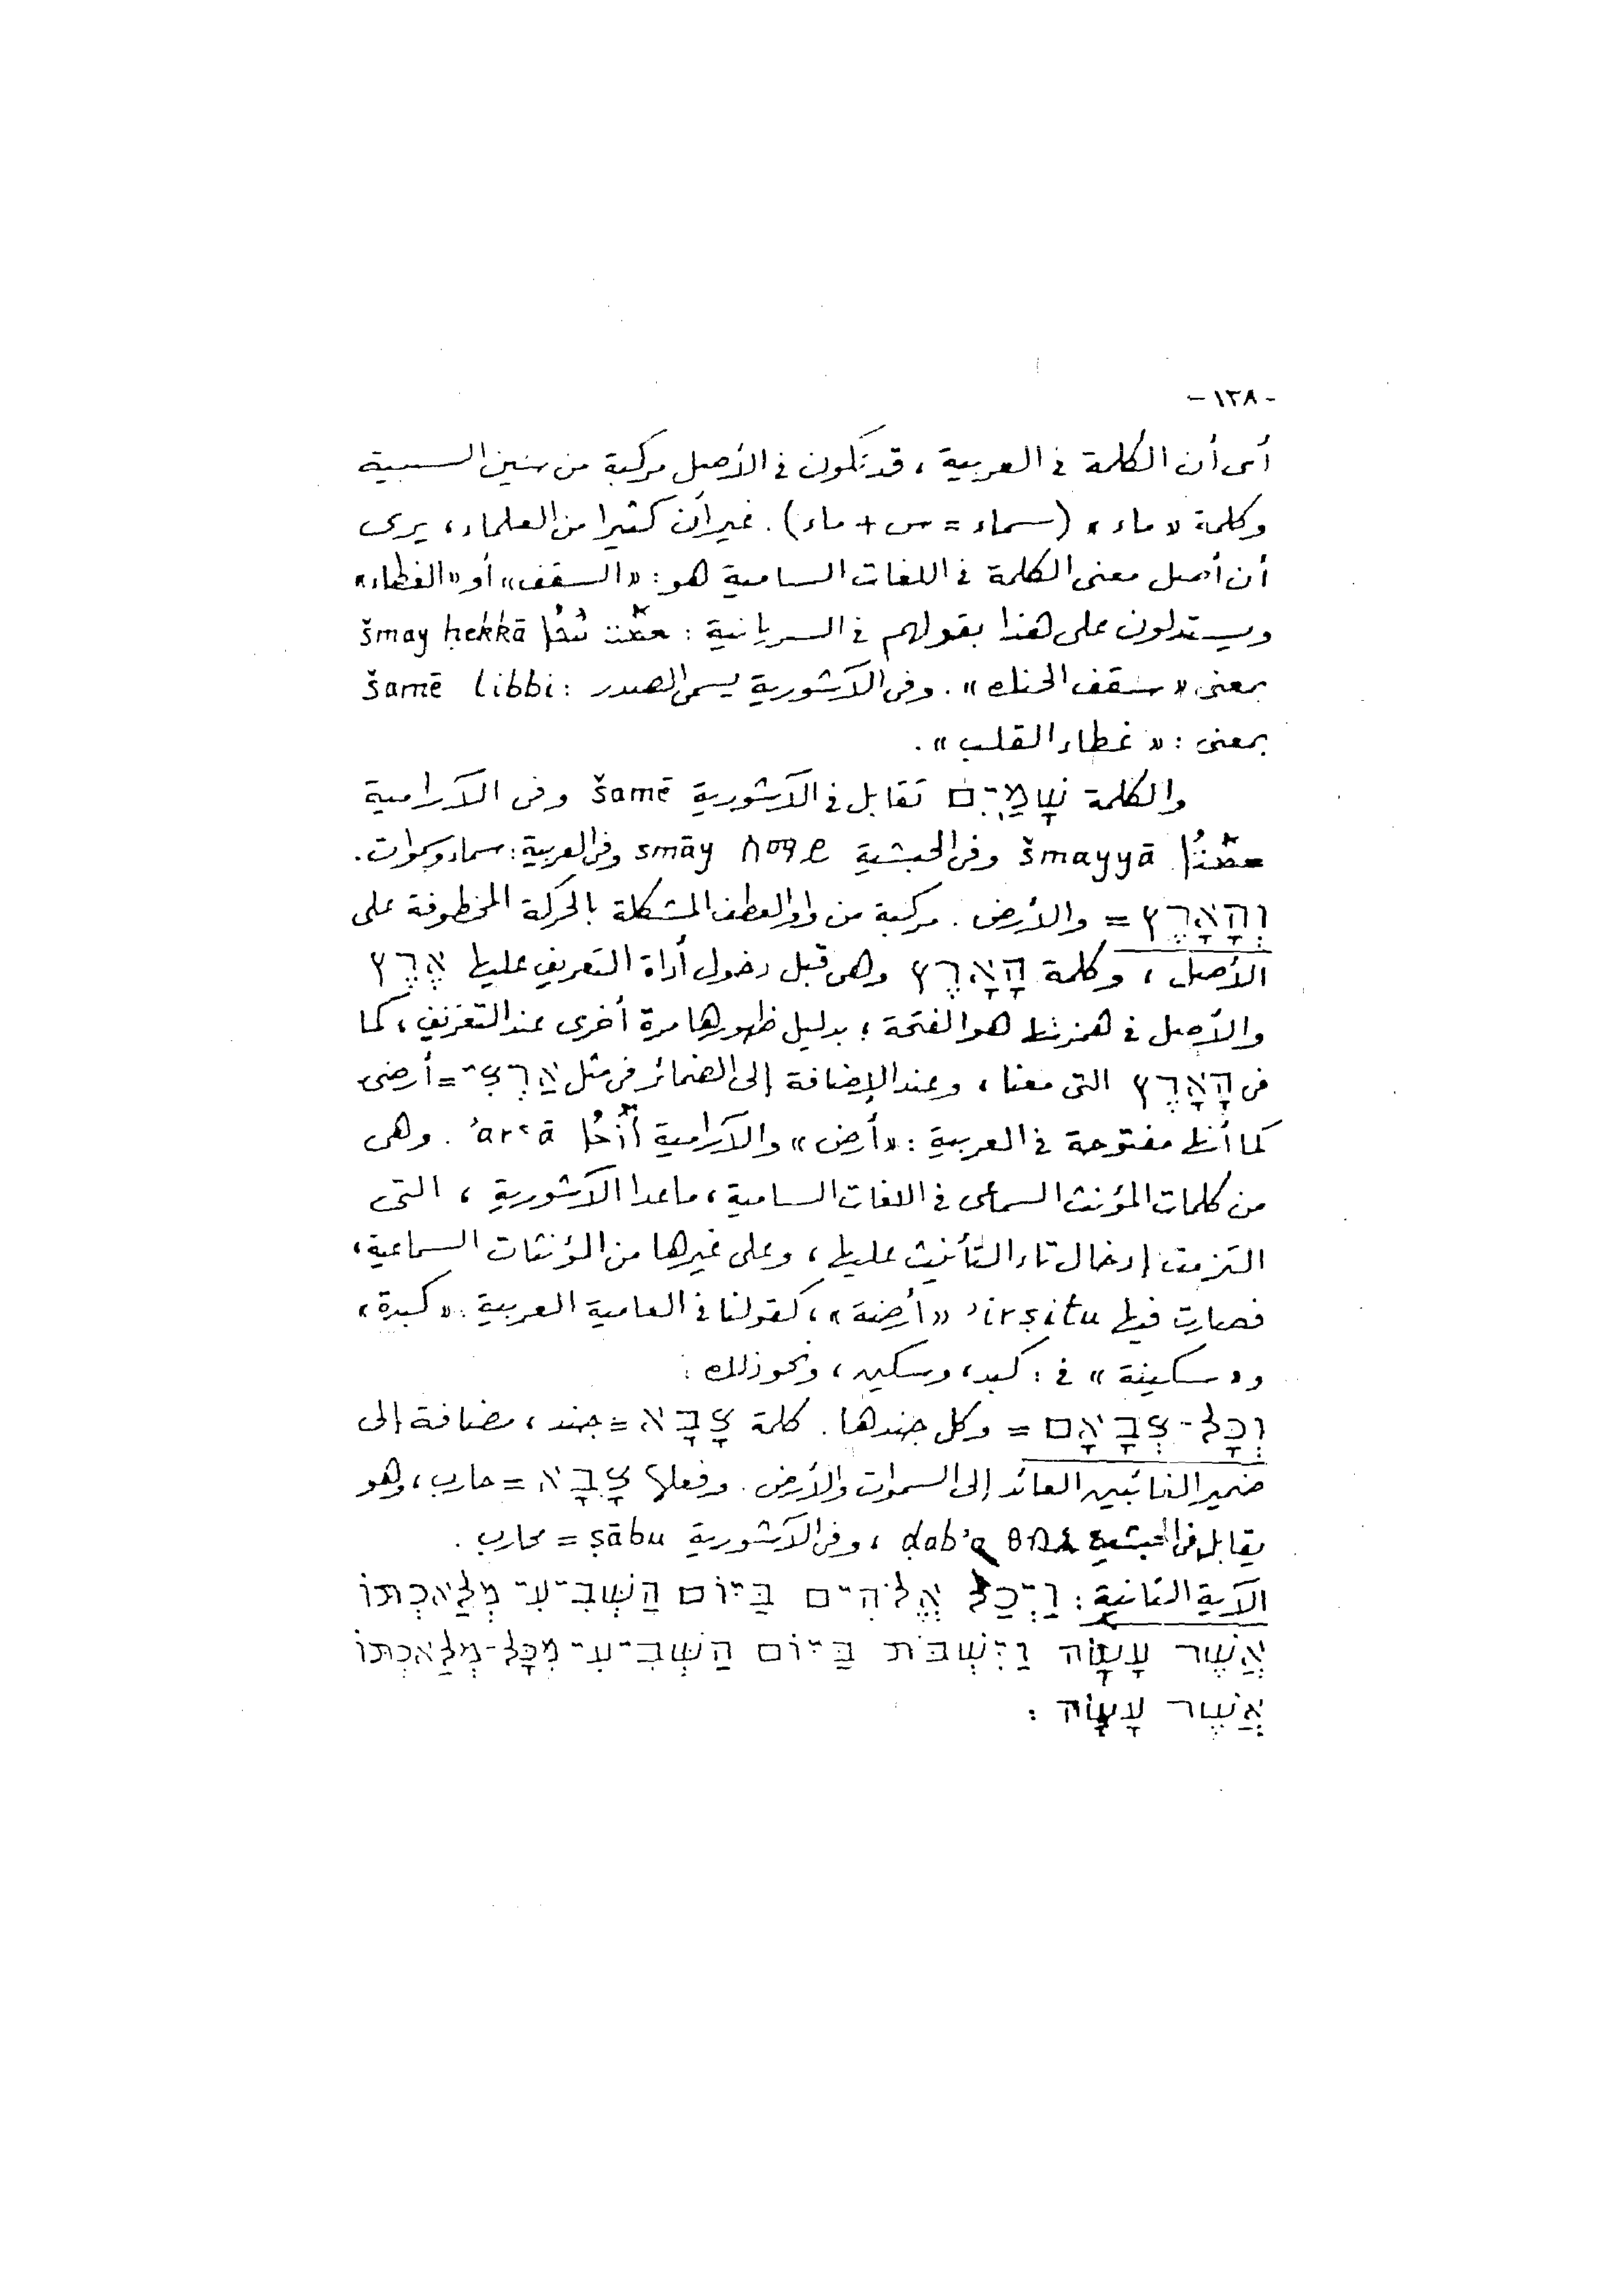 - ١٣٨ -
أى أن الكلمة فى العربية ، قد تكون فى الأصل مركبة من سين السببية
وكلمة « ماء » (سماء = س + ماء) . غير أن كثيرا من العلماء ، يرى
أن أصل معنى الكلمة فى اللغات السامية هو : « السقف » أو « الغطاء »
ويستدلون على هذا بقولهم فى السريانية : ܫܡܝ ܚܟܐ šmay ḥekkā
بمعنى « سقف الحنك » . وفى الآشورية يسمى الصدر : šamē libbi
بمعنى : « غطاء القلب » .
والكلمة שָׁמַיִם تقابل فى الآشورية šamē وفى الآرامية
ܫܡܝܐ šmayyā وفى الحبشية ሰማይ smāy وفى العربية : سماء وسموات .
וְהָאָרֶץ = والأرض . مركبة من واو العطف المشكلة بالحركة المخطوفة على
الأصل ، وكلمة הָאָרֶץ وهى قبل دخول أداة التعريف عليها אֶרֶץ
والأصل فى همزتها هو الفتحة ؛ بدليل ظهورها مرة أخرى عند التعريف ، كما
فى הָאָרֶץ التى معنا ، وعند الإضافة إلى الضمائر فى مثل אַרְצִי = أرضى
كما أنها مفتوحة فى العربية : « أرض » والآرامية ܐܪܥܐ ʾarʿā . وهى
من كلمات المؤنث السماعى فى اللغات السامية ، ماعدا الآشورية ، التى
التزمت إدخال تاء التأنيث عليها ، وعلى غيرها من المؤنثات السماعية ،
فصارت فيها ʾirṣitu « أرضة » ، كقولنا فى العامية العربية : « كبدة »
و « سكينة » فى : كبد ، وسكين ، ونحو ذلك :
וְכָל-צְבָאָם = وكل جندها . كلمة צָבָא = جند ، مضافة إلى
ضمير الغائبين العائد إلى السموات والأرض . وفعلها צָבָא = حارب ، وهو
يقابل فى الحبشية ፀብአ ḍabʾa ، وفى الآشورية ṣābu = محارب .
الآية الثانية : וַיְכַל אֱלֹהִים בַּיּוֹם הַשְּׁבִיעִי מְלַאכְתּוֹ
אֲשֶׁר עָשָׂה וַיִּשְׁבֹּת בַּיּוֹם הַשְּׁבִיעִי מִכָּל-מְלַאכְתּוֹ
אֲשֶׁר עָשָׂה :